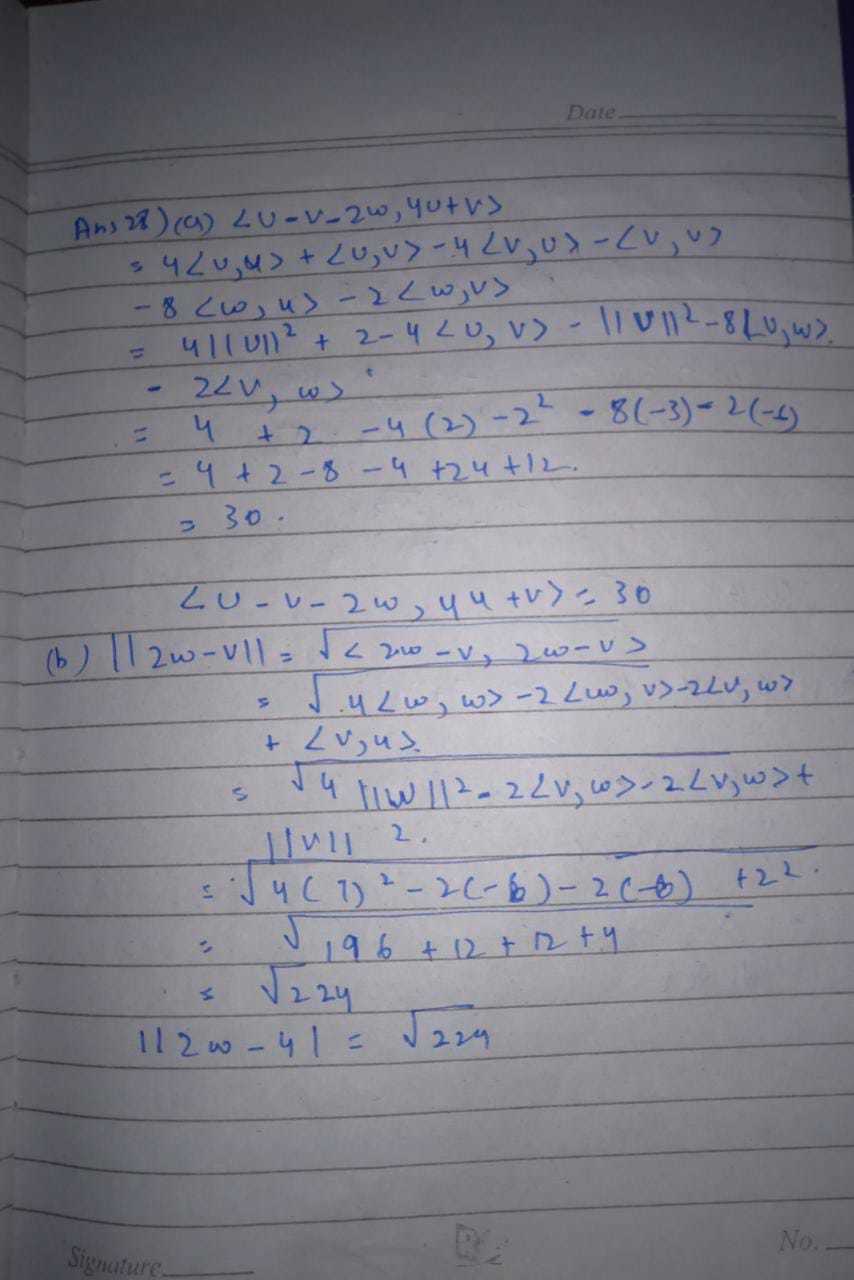 Date
Ans 28) (a) <u-v-2w, 4u+v>
= 4<u,u> + <u,v> -4 <v,u> -<v,v>
-8 <w,u> -2 <w,v>
= 4||u||² + 2-4 <u,v> - ||v||²-8<u,w>
- 2<v,w>
= 4 +2 -4(2) -2² -8(-3)-2(-6)
= 4+2-8-4+24+12.
= 30.
<u-v-2w, 4u+v> = 30
(b) ||2w-v|| = √<2w-v, 2w-v>
= √4<w,w> -2<w,v>-2<v,w>
+ <v,u>.
= √4||w||²-2<v,w>-2<v,w>+
||v|| 2.
= √4(7)²-2(-6)-2(-6) +2².
= √196+12+12+4
= √224
||2w-4| = √224
Signature
No.